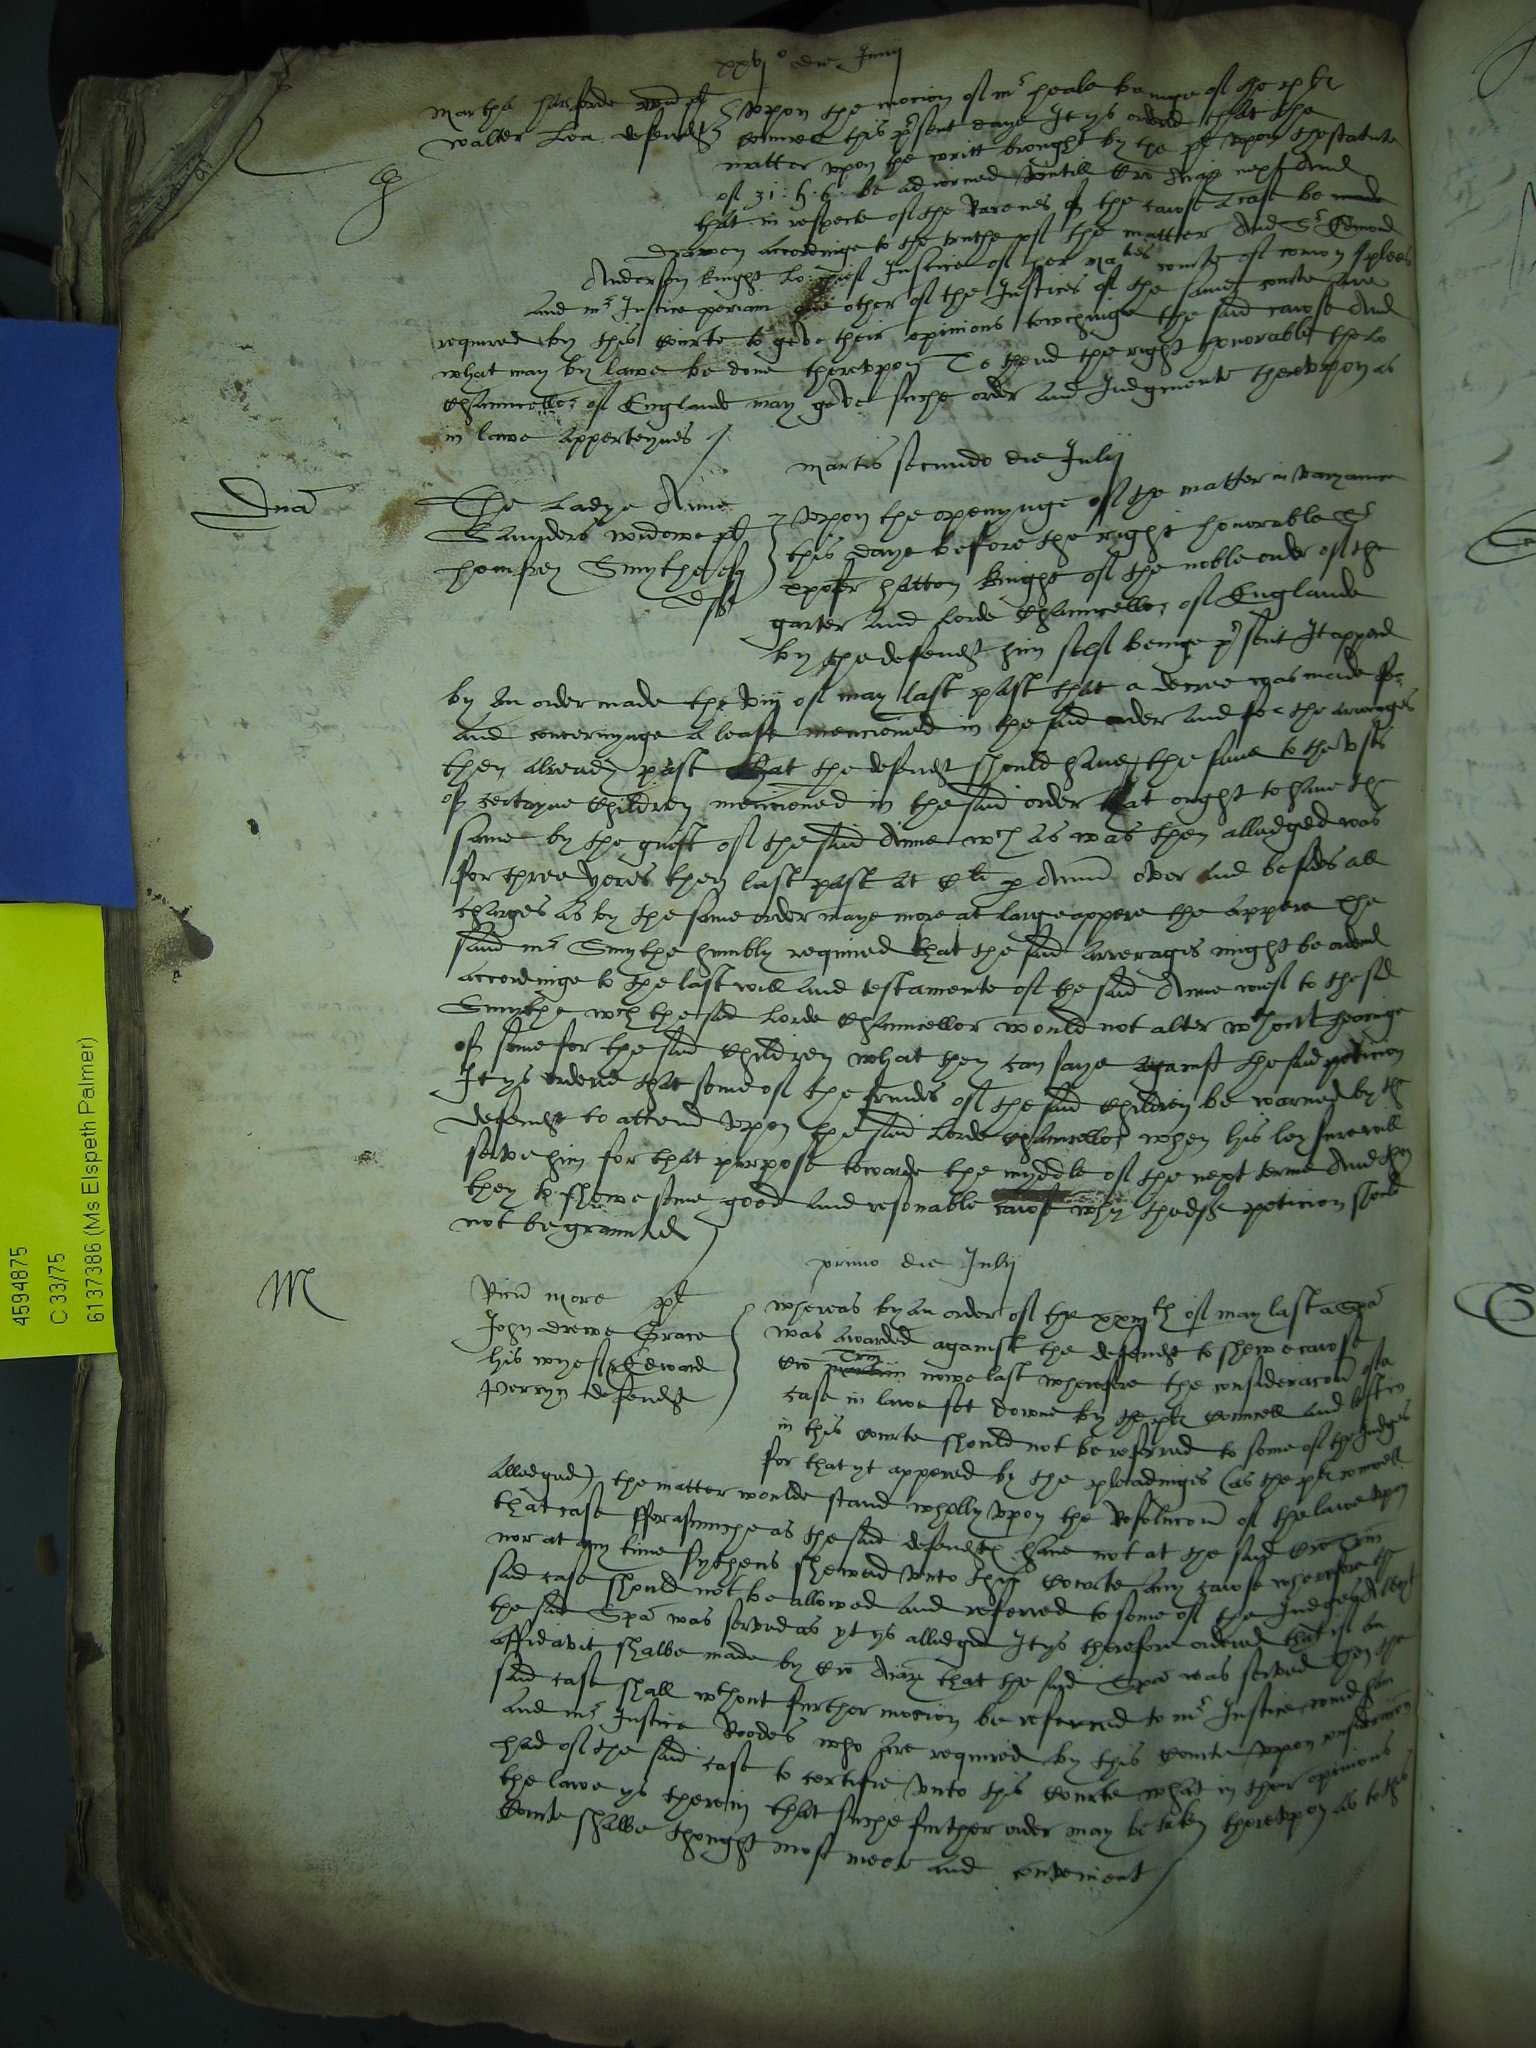 xxvjo die Junij
Martha hasforde vid pl
Walter Lea defendt
Vpon the mocion of mr heale beinge of the pltes
councell this present daye It ys ordered that the
matter vpon the writt brought by the pl vpon the statute
of 31 : h : 6 : be adiorned vntill Cro Aiar next And
that in respecte of the Rarenes of the cawse A case be made
drawen accordinge to the truthe of the matter And Sr Edmond
Anderson knight Lo: chief Justice of her maties courte of comon plees
and mr Justice periam one other of the Justices of the same courte are
required by this courte to geve their opinions towchinge the said cawse And
what may by lawe be done therevpon To thend the right honorable the Lo
Chauncellor of Englande may geve suche order and Judgmente therevpon as
in lawe apperteynes /
martis secundo die Julij
Dna
The Ladye Anne
Saunders widowe pl
homfrey Smythe esq
deft
Vpon the openynge of the matter in varyance
this daye before the right honorable Sr
xpofer hatton knight of the noble order of the
garter and Lorde Chauncellor of Englande
by the defendt him self beinge present It appered
by an order made the viij of may last past that a decree was made for
and concernynge a lease mencioned in the said order and for the arrerages
then alreadey past that the defendt should have the same to the vses
of certayne Children mencioned in the said order that ought to have the
same by the guift of the said Anne wch as was then alledged was
for three yeres then last past at Cli p Annu over and besides all
charges as by the same order maye more at large appere the appere The
said mr Smythe humbly required that the said Arrerages might be ordered
accordinge to the last will and testamente of the said Anne wief to the sd
Smythe wch the said Lorde Chauncellor would not alter wthout hearinge
of some for the said Children what they can saye against the said peticion
It ys ordered that some of the frendes of the said Children be warned by the
defendt to attend vpon the said Lorde Chauncellor when his leysure will
serve him for that purpose towards the myddle of the next terme And then
they to shewe some good and resonable cawse why thedeft peticion should
not be graunted /
primo die Julij
M
Ricu more pl
John drewe Grace
his wyef & Edward
Perryn defendtes
Wheras by an order of the xxiijth of may last a Spa
was awarded against the defendt to shewe cawse
Cro Trin nowe last wherefore the consideracon of a
case in lawe set downe by the pltes councell and lost in
in this courte should not be referred to some of the Judges
for that yt appered by the pleadinges (as the pltes councell
alledged) the matter woulde stand wholly vpon the Resolucon of the lawe vpon
that case fforasmuche as the said defendtes have not at the said Cro Trin
nor at any time sythens shewed vnto this courte any cawse wherefore the
said case should not be allowed and referred to some of the Judges Albeyt
the said Spa was served as yt ys alledged It ys therefore ordered that if an
affidavit shalbe made by Cro Aiar that the said Spa was served Then the
said case shall wthout further mocion be referred to mr Justice wind ham
and mr Justice Roodes who are required by this courte vpon consideracon
had of the said case to certifie vnto this courte what in their opinions
the lawe ys therein that suche further order may be taken therevpon as to this
courte shalbe thought most meete and convenient /
4594875
C 33/75
6137386 (Ms Elspeth Palmer)